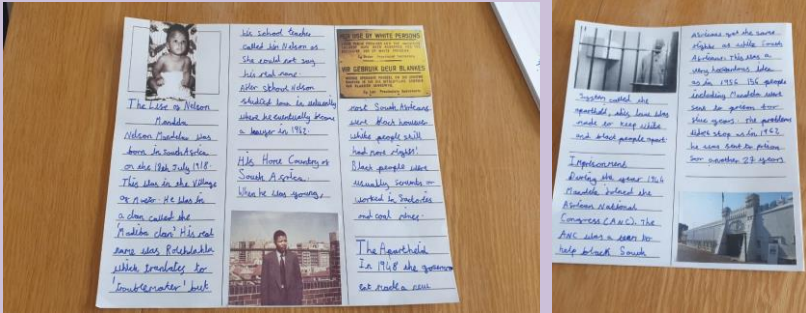 The Life of Nelson
Mandela
Nelson Mandela was
born in South Africa
on the 18th July 1918.
This was in the village
of Mvezo. He was in
a clan called the
'Madiba clan' His real
name was Rolihlahla
which translates to
'troublemaker' but
his school teacher
called him Nelson as
she could not say
his real name
After school Nelson
studied law in university
where he eventually became
a lawyer in 1942.
His Home Country of
South Africa.
When he was young,
FOR USE BY WHITE PERSONS
VIR GEBRUIK DEUR BLANKES
most South Africans
were black however
white people still
had more rights!
Black people were
usually servants or
worked in factories
and coal mines.
The Apartheid
In 1948 the government
made a new
System called the
apartheid, this law was
made to keep white
and black people apart.
Imprisonment
During the year 1944
Mandela joined the
African National
Congress (ANC). The
ANC was a team to
help black South
Africans get the same
rights as white South
Africans. This was a
very idea
as in 1956 156 people
including Mandela were
sent to prison for
five years. The problems
didn't stop as in 1962
he was sent to prison
for another 27 years